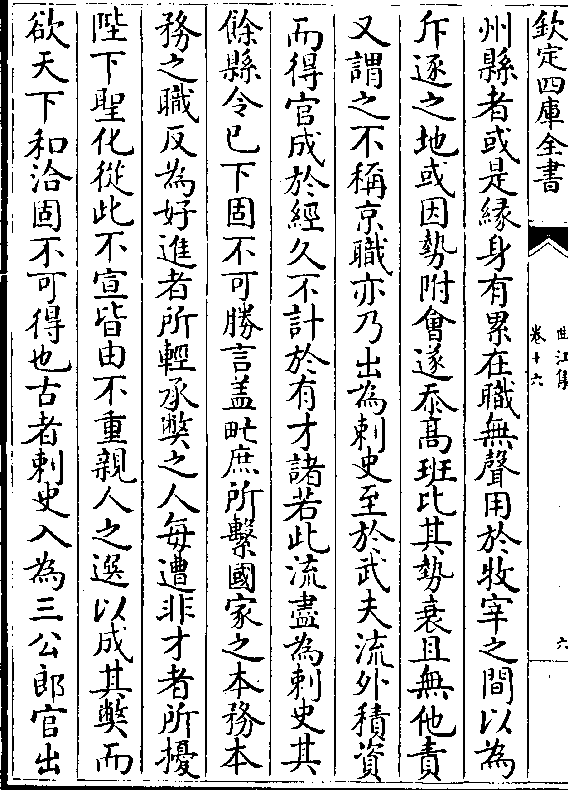 欽定四庫全書
曲江集
卷十六
六
州縣者或是縁身有累在職無聲用於牧宰之間以為
斥逐之地或因勢附會遂忝髙班比其勢衰且無他責
又謂之不稱京職亦乃出為刺史至於武夫流外積資
而得官成於經久不計於有才諸若此流盡為刺史其
餘縣令已下固不可勝言盖甿庶所繫國家之本務本
務之職反為好進者所輕承獘之人每遭非才者所擾
陛下聖化從此不宣皆由不重親人之選以成其獘而
欲天下和洽固不可得也古者刺史入為三公郎官出